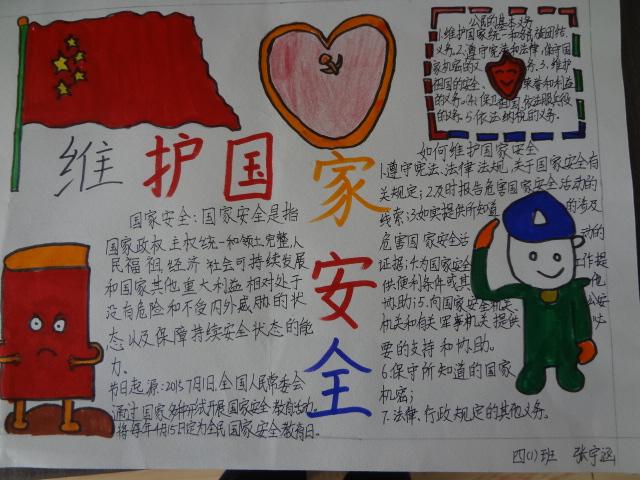 维护国家安全
公民的基本义务
1.维护国家统一和民族团结
义务.2.遵守宪法和法律,保守国
家机密的义务.3.维护
祖国的安全、荣誉和利益
的义务.4.保卫祖国,依法服兵役
的义务.5.依法纳税的义务.
国家安全:国家安全是指
国家政权、主权统一和领土完整、人
民福祖、经济社会可持续发展
和国家其他重大利益相对处于
没有危险和不受内外威胁的状
态以及保障持续安全状态的能
力.
节日起源:2015,7月1日,全国人民常委会
通过国家
开展国家安全教育活动,
将每年4月15日定为全民国家安全教育日.
如何维护国家安全
1.遵守宪法、法律法规,关于国家安全有
关规定;2.及时报告危害国家安全活动的
线索;3.如实提供所知道的涉及
危害国家安全活动的
证据;4.为国家安全工作提
供便利条件或其他
协助;5.向国家安全机关、公安
机关和有关军事机关提供
要的支持和协助.
6.保守所知道的国家
机密;
7.法律、行政规定的其他义务.
四(1)班 张宇涵